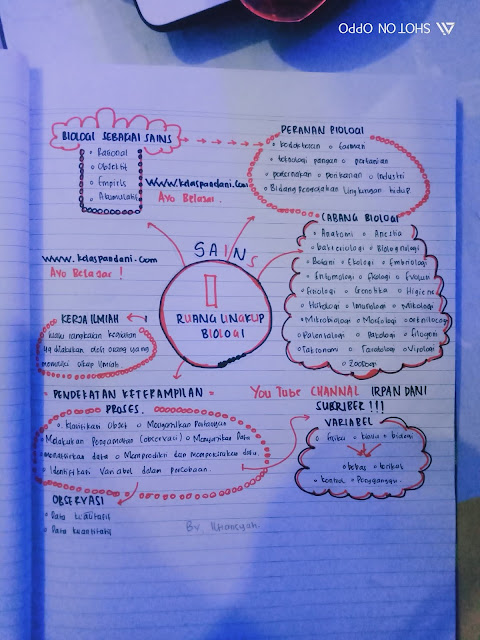 SHOT ON OPPO
BIOLOGI SEBAGAI SAINS
Rasional
Objektif
Empiris
Akumulatif
PERANAN BIOLOGI
kedokteran • Farmasi
teknologi pangan • pertanian
peternakan • perikanan • Industri
Bidang pengelolaan lingkungan hidup
www.kelaspandani.com
Ayo Belajar.
CABANG BIOLOGI
Anatomi
bakteriologi
Botani • Ekologi • Embriologi
Entomologi • Evolusi
Fisiologi • Genetika • Higiene
Imunologi
Mikrobiologi • Morfologi
Palentologi • Patologi
Taksonomi • Teratologi • Virologi
Zoologi
SAINS
RUANG LINGKUP
BIOLOGI
www.kelaspandani.com
Ayo Belajar !
KERJA ILMIAH
rangkaian kegiatan
yg dilakukan oleh orang yang
memiliki sikap ilmiah
PENDEKATAN KETERAMPILAN
PROSES.
Klasifikasi Objek
Melakukan Pengamatan (observasi) • Menyajikan Data
menafsirkan data • Memprediksi dan memperkirakan data.
Identifikasi Variabel dalam percobaan.
You Tube CHANNAL IRPAN DANI
SUBRIBER !!!
VARIABEL
fisika • kimia • biologi
bebas • terikat
kontrol • Pengganggu.
OBSERVASI
Data kualitatif
Data kuantitatif